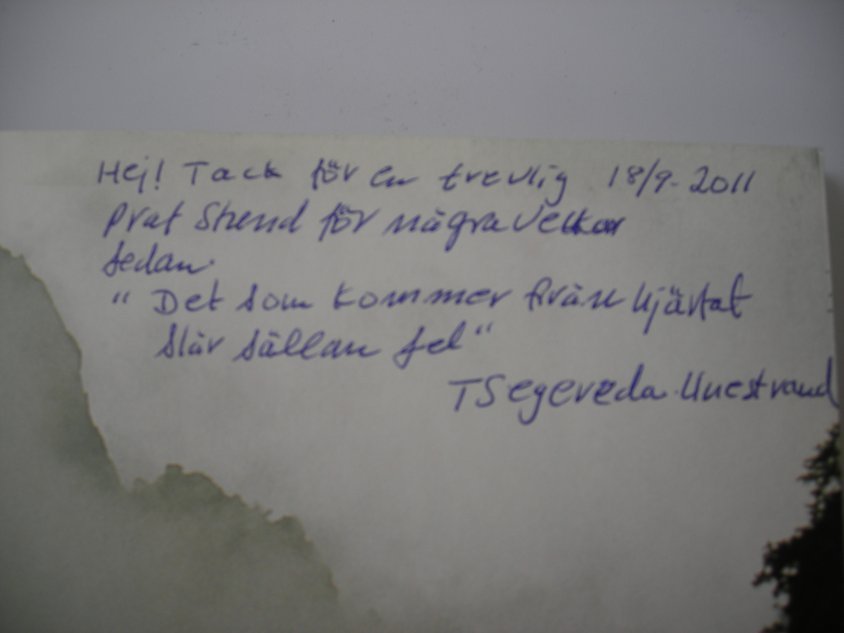 Hej! Tack för en trevlig 18/9-2011
prat Stund för några veckor
sedan.
" Det som kommer från hjärtat
slår sällan fel "
TSegereda